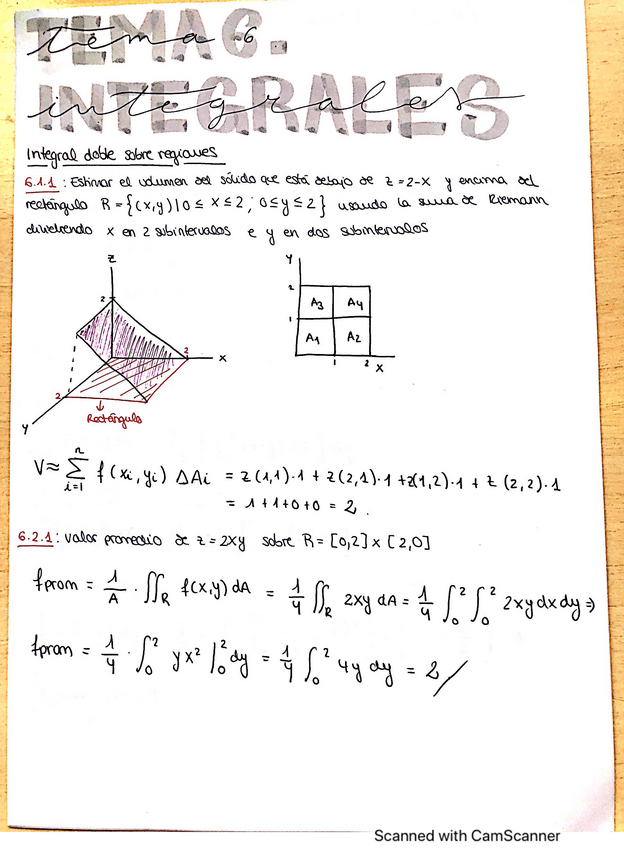 TEMA 6.
tema 6
INTEGRALES
integrales
Integral doble sobre regiones
6.1.1 : Estimar el volumen del sólido que está debajo de z = 2-x y encima del
rectángulo R = {(x,y) | 0 ≤ x ≤ 2 ; 0 ≤ y ≤ 2} usando la suma de Riemann
dividiendo x en 2 subintervalos e y en dos subintervalos
z
2
2
x
2
y
Rectángulo
y
2
A3 A4
1
A1 A2
1 2 x
V ≈ Σ_{i=1}^{n} f(xi, yi) ΔAi = z(1,1)·1 + z(2,1)·1 + z(1,2)·1 + z(2,2)·1
= 1+1+0+0 = 2.
6.2.1 : valor promedio de z = 2xy sobre R = [0,2] x [2,0]
fprom = 1/A · ∬_R f(x,y) dA = 1/4 ∬_R 2xy dA = 1/4 ∫_0^2 ∫_0^2 2xy dx dy ⇒
fprom = 1/4 · ∫_0^2 yx² |_0^2 dy = 1/4 ∫_0^2 4y dy = 2/
Scanned with CamScanner